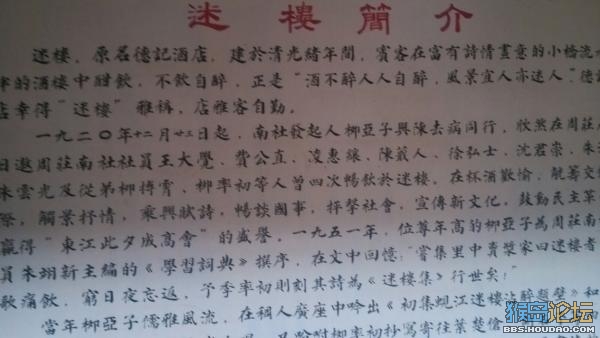 迷樓簡介
迷楼，原名德記酒店，建於清光緒年間，賓客在富有詩情畫意的小橋流水
的酒楼中酣飲，不飲自醉，正是"酒不醉人人自醉，風景宜人亦迷人"德記
店幸得"迷楼"雅稱，店雅客自勤。
一九二〇年十二月廿三日起，南社發起人柳亞子與陳去病同行，欣然在周莊
日邀周莊南社社員王大覺、費公直、凌惠纕、陳蕺人、徐弘士、沈君崇、朱
朱雲光及從弟柳摶霄，柳率初等人曾四次暢飲於迷楼。在杯酒歡愉、觥籌交
際，觸景抒情，乘興賦詩，暢談國事，抨擊社會，宣傳新文化，鼓動民主革
赢得"東江此夕成高會"的盛譽。一九五一年，位尊年高的柳亞子為周莊南
員朱翊新主編的《學習詞典》撰序，在文中回憶："嘗集里中賣漿家曰迷楼者
歌痛飲，窮日夜忘返，予季率初則刻其詩為《迷楼集》行世矣！"
當年柳亞子儒雅風流，在稠人廣座中吟出《初集蜆江迷楼沾醉題壁》和
柳率初抄寫寄往葉楚傖
猴岛论坛
BBS.HOUDAO.COM